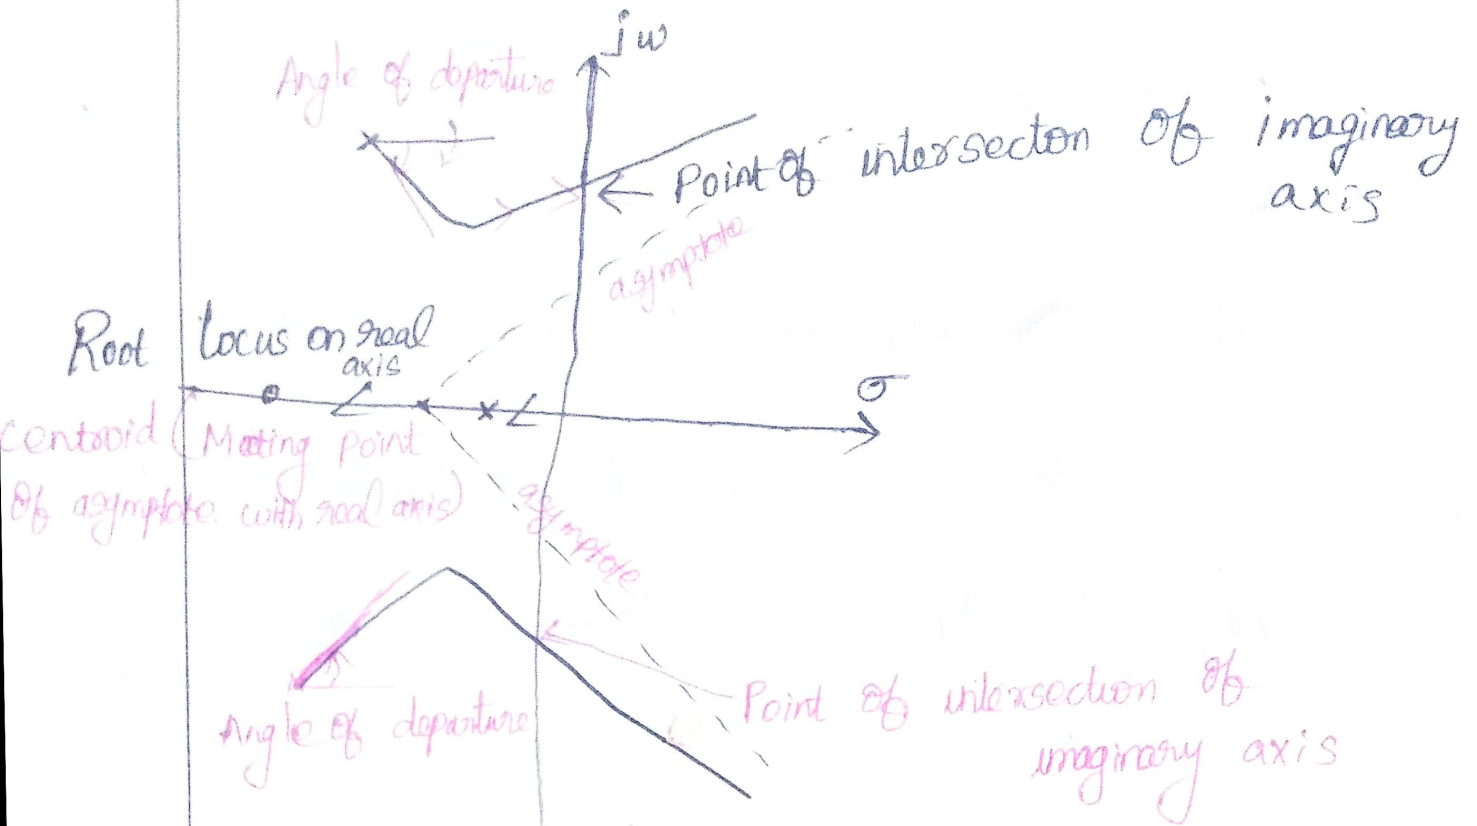 jω
Angle of departure
Point of intersecton of imaginary
axis
asymptote
Root locus on real
axis
σ
centroid (Meeting point
of asymptote with real axis)
asymptote
Point of intersection of
imaginary axis
Angle of departure